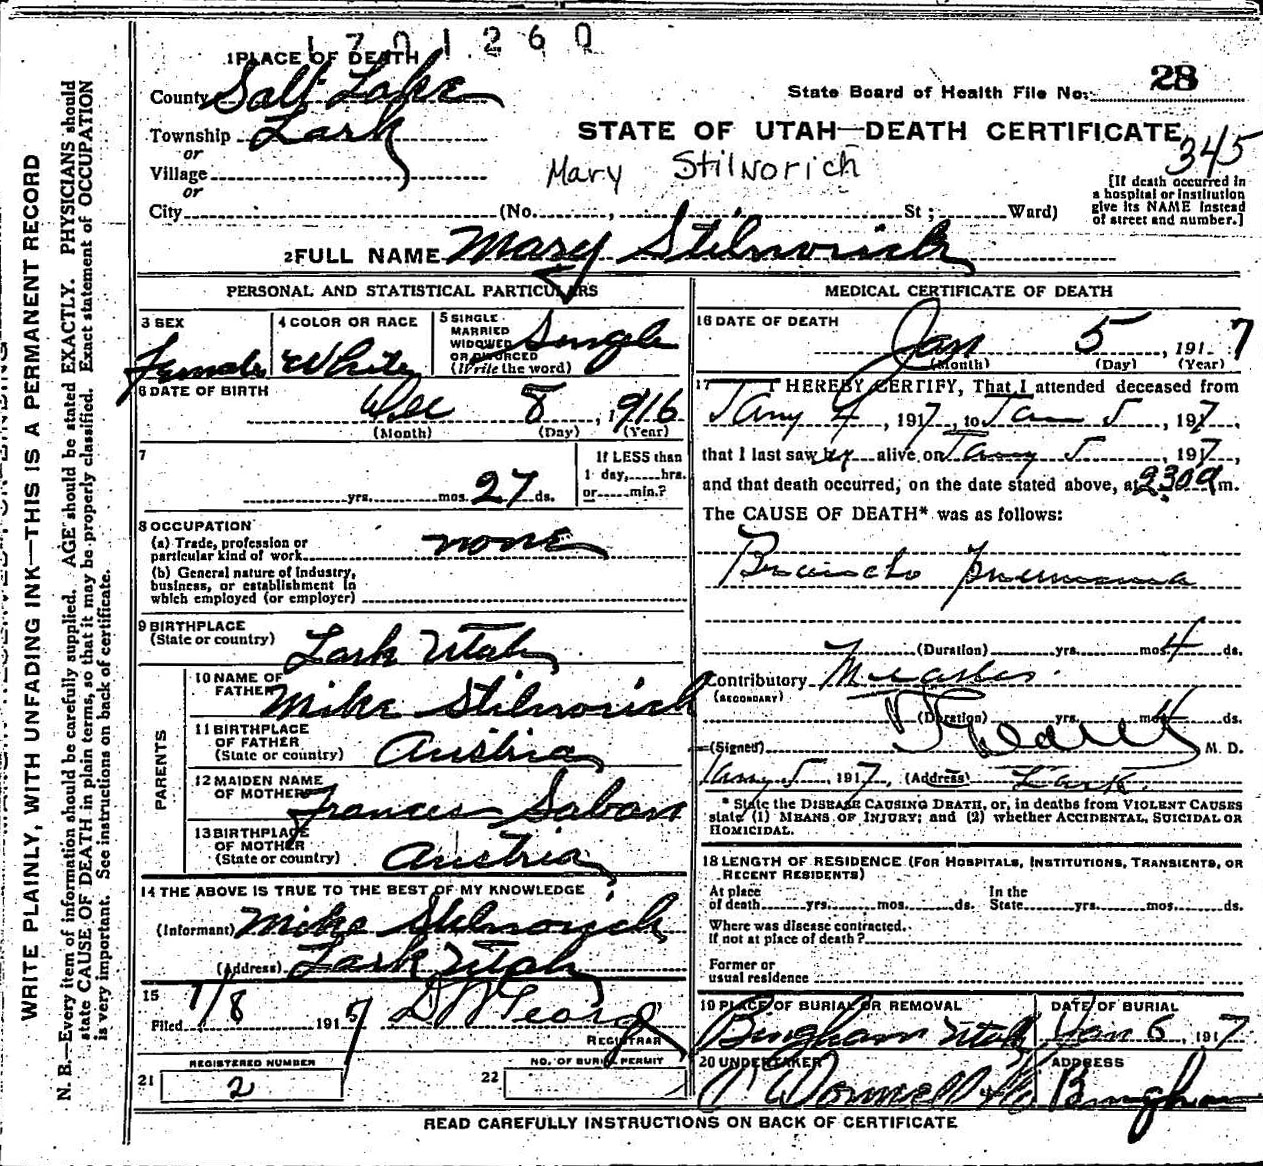 1701260
1 PLACE OF DEATH
County Salt Lake
State Board of Health File No. 28
Township Lark
STATE OF UTAH—DEATH CERTIFICATE
345
or
Village
Mary Stilnorich
or
[If death occurred in
a hospital or institution
give its NAME instead
of street and number.]
City (No. , St; Ward)
2 FULL NAME Mary Stilnorich
PERSONAL AND STATISTICAL PARTICULARS
3 SEX
Female
4 COLOR OR RACE
White
5 SINGLE
MARRIED
WIDOWED
OR DIVORCED
(Write the word)
Single
6 DATE OF BIRTH
Dec 8, 1916
(Month) (Day) (Year)
7
yrs. mos. 27 ds.
If LESS than
1 day, hrs.
or min.?
8 OCCUPATION
(a) Trade, profession or
particular kind of work none
(b) General nature of industry,
business, or establishment in
which employed (or employer)
9 BIRTHPLACE
(State or country) Lark Utah
PARENTS
10 NAME OF
FATHER Mike Stilnorich
11 BIRTHPLACE
OF FATHER
(State or country) Austria
12 MAIDEN NAME
OF MOTHER Frances Saban
13 BIRTHPLACE
OF MOTHER
(State or country) Austria
14 THE ABOVE IS TRUE TO THE BEST OF MY KNOWLEDGE
(Informant) Mike Stilnorich
(Address) Lark Utah
15
Filed 1/8 1917
REGISTRAR
REGISTERED NUMBER
21 2
NO. OF BURIAL PERMIT
22
MEDICAL CERTIFICATE OF DEATH
16 DATE OF DEATH
Jan 5, 1917
(Month) (Day) (Year)
17 I HEREBY CERTIFY, That I attended deceased from
Jany 4, 1917, to Jan 5, 1917,
that I last saw her alive on Jany 5, 1917,
and that death occurred, on the date stated above, at 230 a m.
The CAUSE OF DEATH* was as follows:
Broncho pneumonia
(Duration) yrs. mos 4 ds.
Contributory Measles
(SECONDARY)
(Duration) yrs. mos 4 ds.
(Signed) M. D.
Jany 5, 1917. (Address) Lark
* State the DISEASE CAUSING DEATH, or, in deaths from VIOLENT CAUSES
state (1) MEANS OF INJURY; and (2) whether ACCIDENTAL, SUICIDAL OR
HOMICIDAL.
18 LENGTH OF RESIDENCE (FOR HOSPITALS, INSTITUTIONS, TRANSIENTS, OR
RECENT RESIDENTS)
At place
of death yrs. mos. ds.
In the
State yrs. mos. ds.
Where was disease contracted,
if not at place of death?
Former or
usual residence
19 PLACE OF BURIAL OR REMOVAL
Bingham Utah
DATE OF BURIAL
Jan 6, 1917
20 UNDERTAKER
O'Donnell & Co
ADDRESS
Bingham
READ CAREFULLY INSTRUCTIONS ON BACK OF CERTIFICATE
WRITE PLAINLY, WITH UNFADING INK—THIS IS A PERMANENT RECORD
N. B.—Every item of information should be carefully supplied. AGE should be stated EXACTLY. PHYSICIANS should
state CAUSE OF DEATH in plain terms, so that it may be properly classified. Exact statement of OCCUPATION
is very important. See instructions on back of certificate.